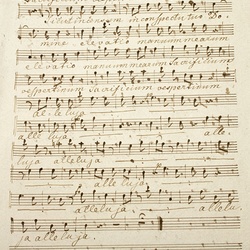 Sicut incensum in conspectu tuo Do,
mine elevatio manuum mearum
elevatio manuum mearum Sacrificium
vespertinum Sacrificium vespertinum
al leluja alle
luja alleluja alle,
luja alleluja alleluja
alleluja. allelu,
ja alleluja.